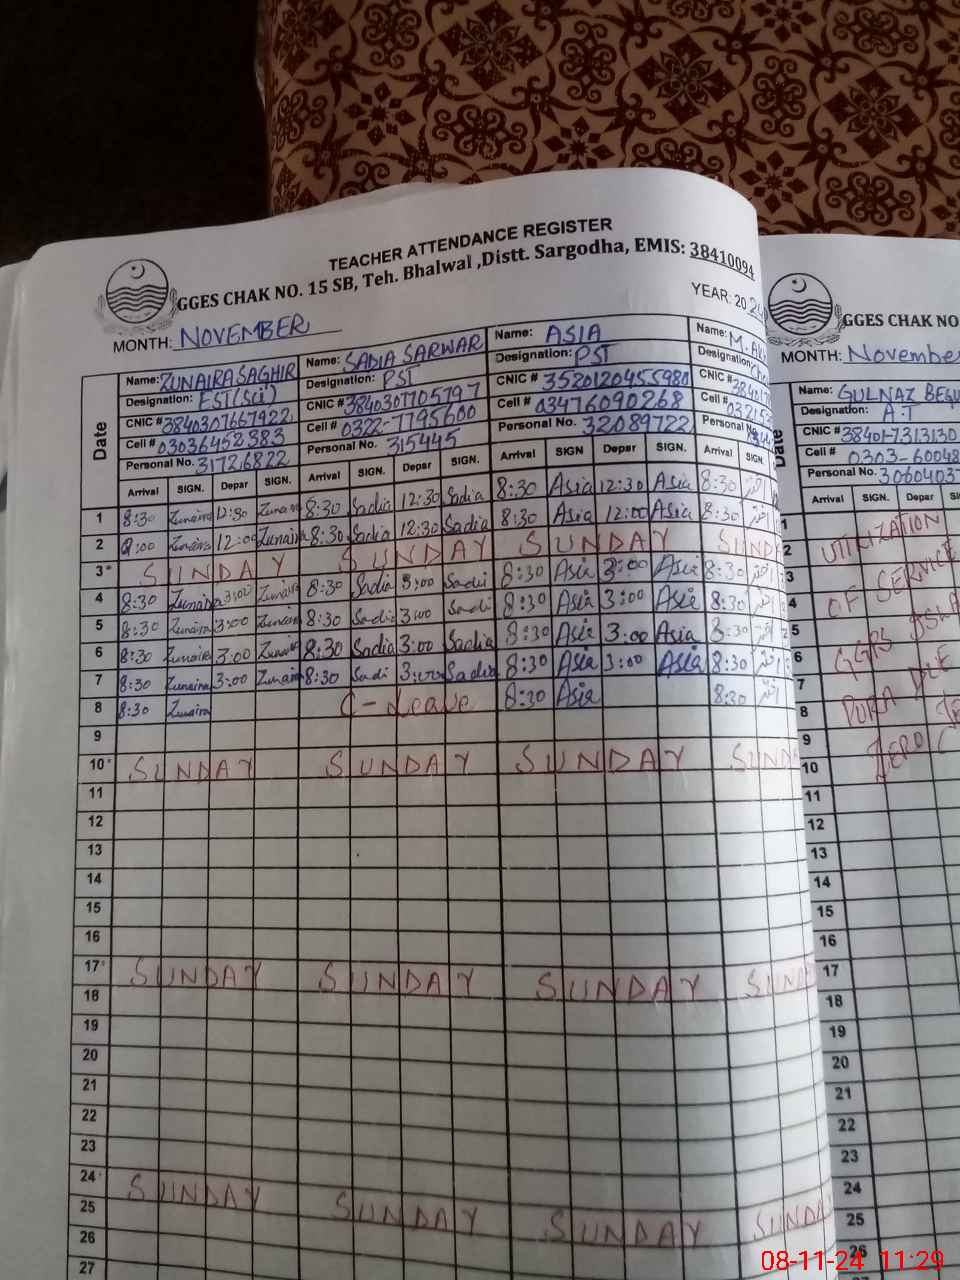 TEACHER ATTENDANCE REGISTER
GGES CHAK NO. 15 SB, Teh. Bhalwal ,Distt. Sargodha, EMIS: 38410094
YEAR: 2024
MONTH: NOVEMBER
Date
Name: ZUNAIRA SAGHIR
Designation: EST(Sci)
CNIC # 3840307667922
Cell # 03036452383
Personal No. 31726822
Name: SADIA SARWAR
Designation: PST
CNIC # 3840301705797
Cell # 0322-7795600
Personal No. 315445
Name: ASIA
Designation: PST
CNIC # 3520120455980
Cell # 03476090268
Personal No. 32089722
Name: M.
Designation:
CNIC #
Cell #
Personal No.
Arrival SIGN. Depar SIGN. Arrival SIGN. Depar SIGN. Arrival SIGN Depar SIGN. Arrival SIGN.
1 8:30 Zunaira 12:30 Zunaira 8:30 Sadia 12:30 Sadia 8:30 Asia 12:30 Asia 8:30 اختر
2 Zunaira 12:00 Zunaira 8:30 Sadia 12:30 Sadia 8:30 Asia 12:00 Asia 8:30 اختر
3 SUNDAY SUNDAY SUNDAY SUND
4 8:30 Zunaira 3:00 Zunaira 8:30 Sadia 3:00 Sadia 8:30 Asia 3:00 Asia 8:30 اختر
5 8:30 Zunaira 3:00 Zunaira 8:30 Sadia 3:00 Sadi 8:30 Asia 3:00 Asia 8:30 اختر
6 8:30 Zunaira 3:00 Zunaira 8:30 Sadia 3:00 Sadia 8:30 Asia 3:00 Asia 8:30 اختر
7 8:30 Zunaira 3:00 Zunaira 8:30 Sadi 3:00 Sadia 8:30 Asia 3:00 Asia 8:30 اختر
8 8:30 Zunaira C-Leave 8:30 Asia 8:30 اختر
9
10 SUNDAY SUNDAY SUNDAY SUND
11
12
13
14
15
16
17 SUNDAY SUNDAY SUNDAY SUND
18
19
20
21
22
23
24 SUNDAY SUNDAY SUNDAY SUNDA
25
26
27
GGES CHAK NO
MONTH: November
Date
Name: GULNAZ BEGU
Designation: A.T
CNIC # 38401-7313130
Cell # 0303-60048
Personal No. 3060403
Arrival SIGN. Depar SIGN
1
2 UTILIZATION
3
4 OF SERVICE
5
6 GGPS
7
8 PURA DUE
9
10 ZERO
11
12
13
14
15
16
17
18
19
20
21
22
23
24
25
26
08-11-24 11:29